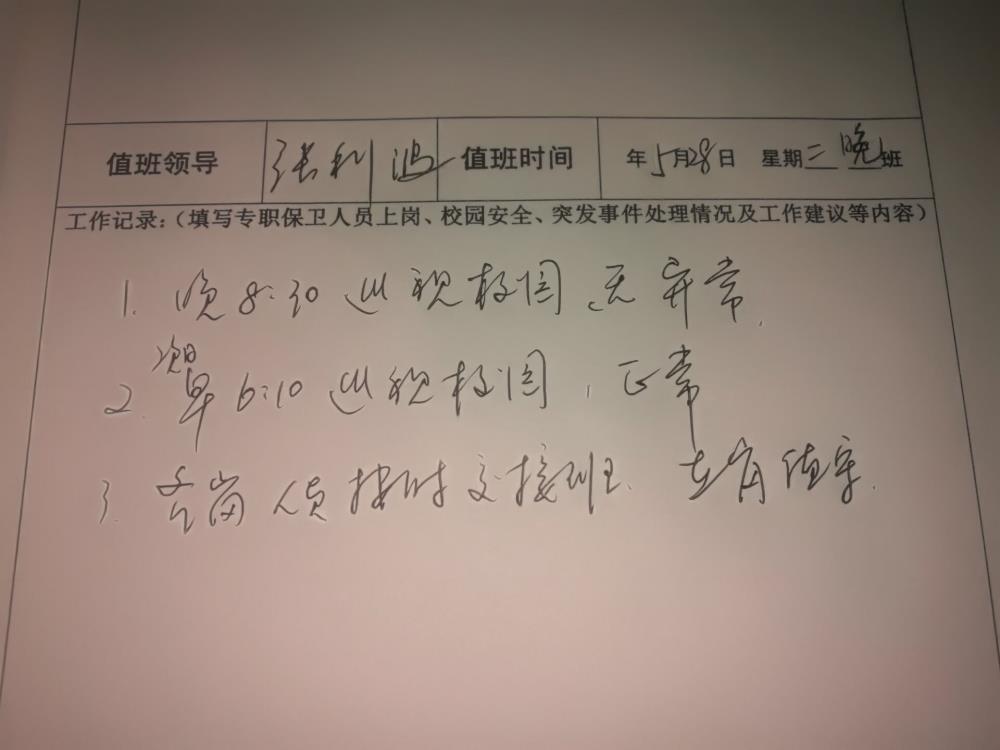 值班领导 张利鸿 值班时间 年5月28日 星期三 晚班
工作记录：（填写专职保卫人员上岗、校园安全、突发事件处理情况及工作建议等内容）
1. 晚8:30巡视校园，无异常.
次日
2. 早6:10巡视校园，正常
3. 各岗人员按时交接班. 在岗值守.